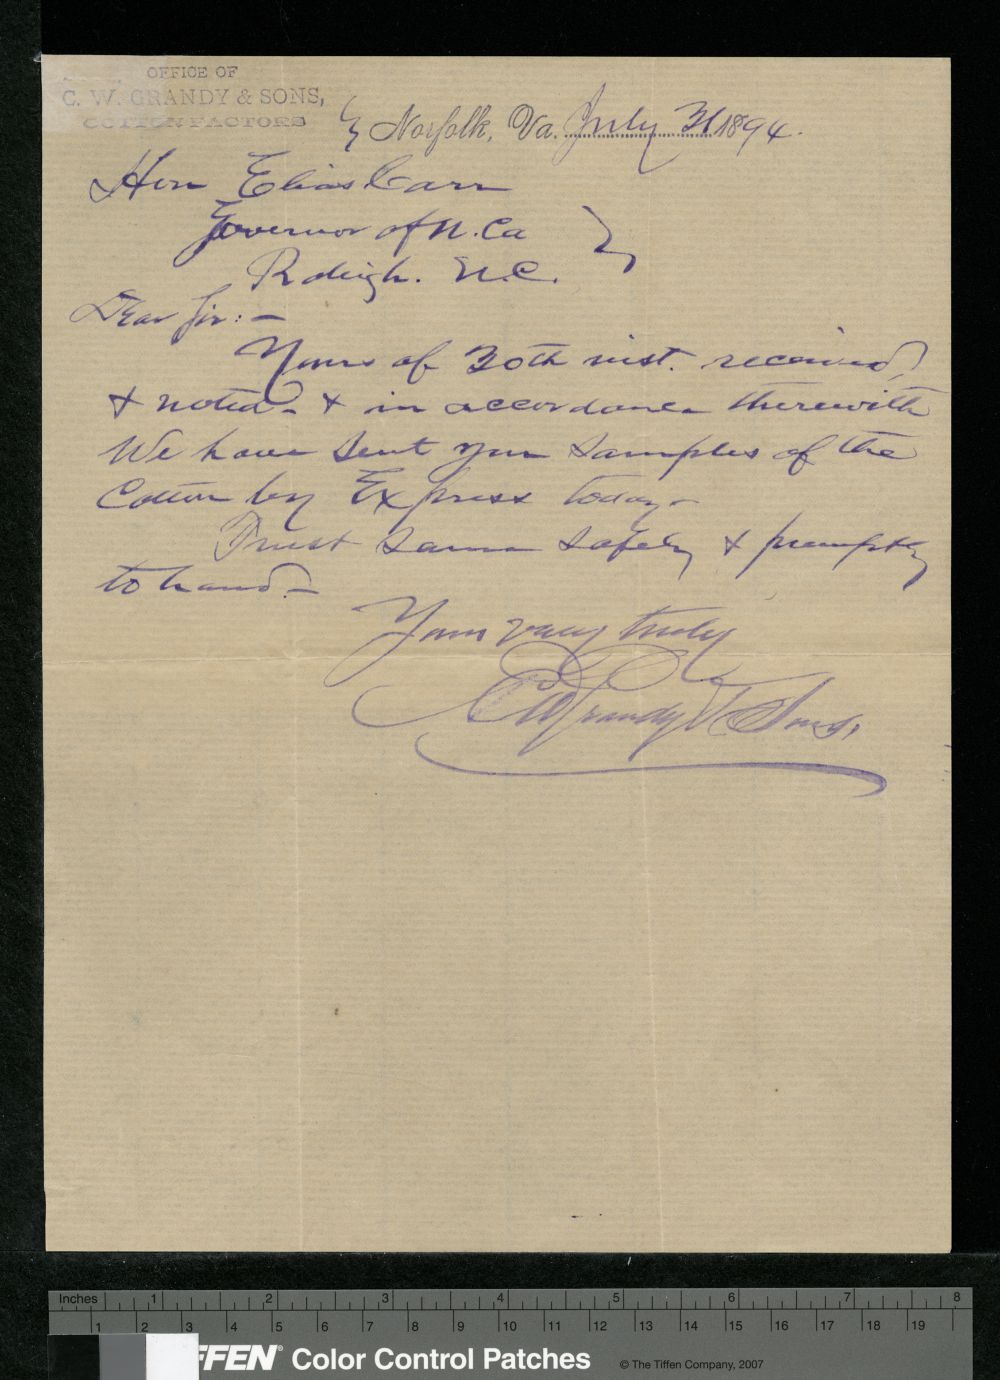 OFFICE OF
C. W. GRANDY & SONS,
COTTON FACTORS
Norfolk, Va. July 31 1894.
Hon Elias Carr
Governor of N. Ca
Raleigh. N.C.
Dear Sir:-
Yours of 30th inst. received,
& noted- & in accordance therewith
We have sent you samples of the
Cotton by Express today-
Trust same safely & promptly
to hand.-
Yours very truly
C W Grandy & Sons.
Inches 1 2 3 4 5 6 7 8
1 2 3 4 5 6 7 8 9 10 11 12 13 14 15 16 17 18 19
FFEN® Color Control Patches © The Tiffen Company, 2007